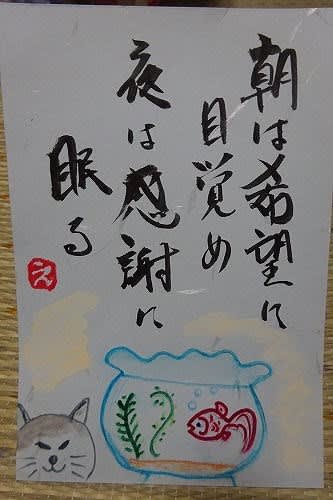 朝は希望に
目覚め
夜は感謝に
眠る
え